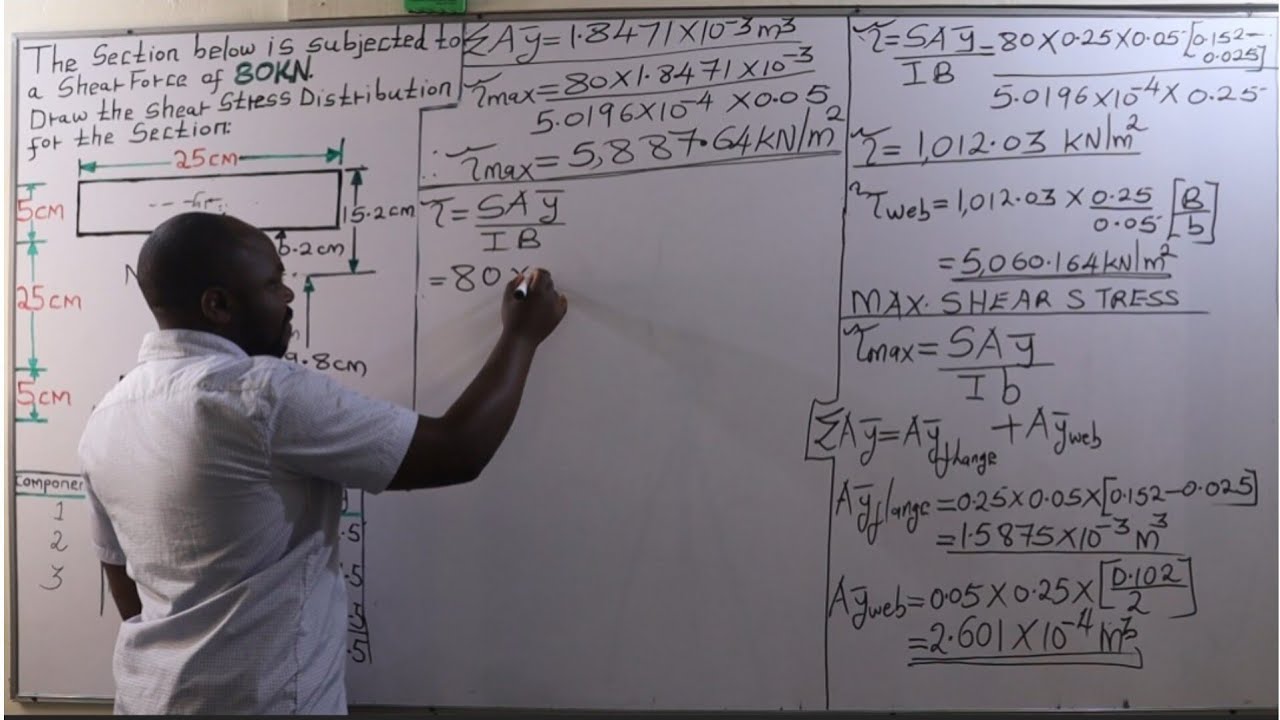 The Section below is subjected to
a Shear Force of 80KN.
Draw the Shear Stress Distribution
for the Section:
25cm
5cm
15.2cm
25cm
9.8cm
5cm
Componen
1
2
3
.5
.5
.5
ΣAȳ = 1.8471×10⁻³m³
τmax = 80×1.8471×10⁻³
5.0196×10⁻⁴ ×0.05
∴ τmax = 5,887.64KN/m²
τ = SAȳ
IB
= 80×
τ = SAȳ = 80×0.25×0.05[0.152–0.025]
IB 5.0196×10⁻⁴× 0.25
τ = 1,012.03 KN/m²
τweb = 1,012.03 × 0.25 [B
0.05 b]
= 5,060.164KN/m²
MAX. SHEAR STRESS
τmax = SAȳ
Ib
ΣAȳ = Aȳfhange + Aȳweb
Aȳflange = 0.25×0.05×[0.152–0.025]
= 1.5875×10⁻³ m³
Aȳweb = 0.05×0.25×[0.102
2]
= 2.601×10⁻⁴ m³